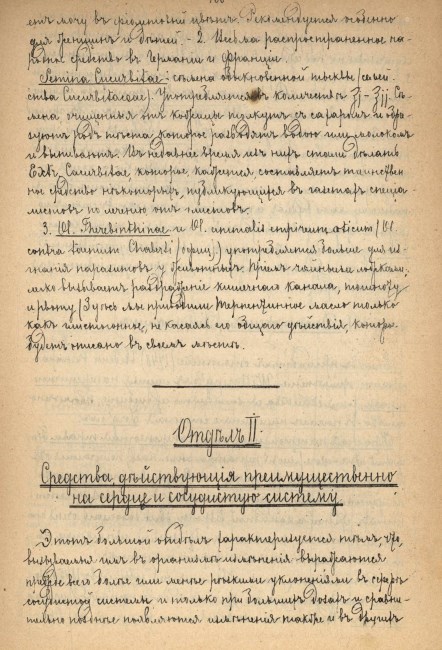 етъ мочу въ фіолетовый цвѣтъ. Рекомендуется особенно
для женщинъ и дѣтей. - 2. Весьма распространенное на-
родное средство въ Германіи и Франціи.
Semina Cucurbitae: сѣмена обыкновенной тыквы (семей-
ства Cucurbitaceae). Употребляется въ количествѣ ℥j - ℥jj. Сѣ-
мена очищенныя отъ кожицы толкутъ съ сахаромъ и обра-
зуютъ родъ тѣста, которое разводятъ водою или молокомъ
и выпиваютъ. Въ недавнее время изъ нихъ стали дѣлать
Extr. Cucurbitae, которое, кажется, составляетъ таинствен-
ное средство нѣкоторыхъ, публикующихся въ газетахъ спеціа-
листовъ по леченію отъ глистовъ.
3. Ol. Therebinthinae и Ol. animalis empyreum. aeticum (Ol.
contra taeniam Chaberti) употребляется больше для из-
гнанія паразитовъ у животныхъ. Пріемъ чайными ложками,
легко вызываетъ раздраженіе кишечнаго канала, тошноту
и рвоту (Здѣсь мы приводили Терпентинное масло только
какъ глистогонное, не касаясь его общаго дѣйствія, которое
будетъ описано въ своемъ мѣстѣ.
Отдѣлъ II
Средства, дѣйствующія преимущественно
на сердце и сосудистую систему.
Этотъ большой отдѣлъ характеризуется тѣмъ, что
вызываемыя имъ въ организмѣ измѣненія выражаются
прежде всего болѣе или менѣе рѣзкими уклоненіями въ сферѣ
сосудистой системы и только при большихъ дозахъ и сравни-
тельно позднѣе появляются измѣненія также и въ другихъ